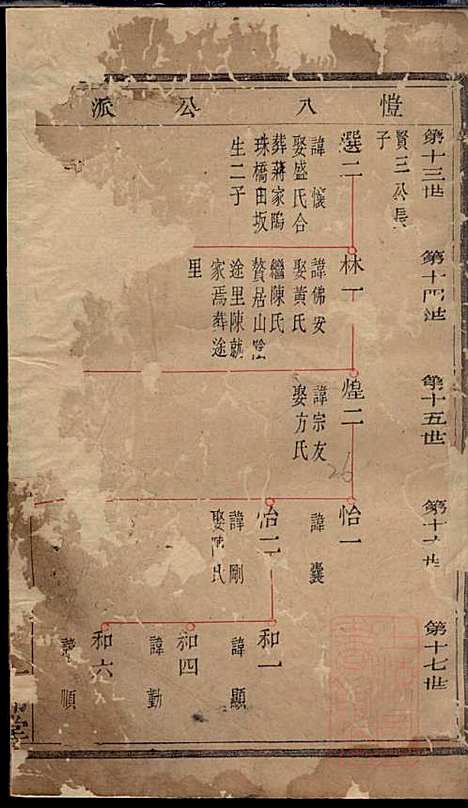 愷八公派
第十三世
賢三公長
子
選二
諱懷
娶盛氏合
葬蔣家塢
珠橋田坂
生二子
第十四世
林一
諱佛安
娶黃氏
繼陳氏
贅居山
途里陳就
家焉葬途
里
第十五世
煌二
諱宗友
娶方氏
26
第十六世
怡一
諱囊
怡二
諱剛
娶氏
第十七世
和一
諱顯
和四
諱勤
和六
諱順